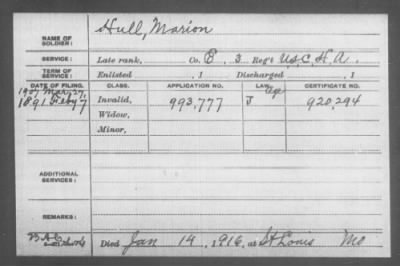 NAME OF SOLDIER: Hull, Marion
SERVICE: Late rank, Co. E, 3 Reg't U.S.C.H.A.
TERM OF SERVICE: Enlisted , 1 Discharged , 1
DATE OF FILING. CLASS. APPLICATION NO. LAW. CERTIFICATE NO.
1907 May 27, Age
1891 Feby 7 Invalid, 993,777 J 920,294
Widow,
Minor,
ADDITIONAL SERVICES:
REMARKS:
Died Jan 14, 1916, at St Louis Mo